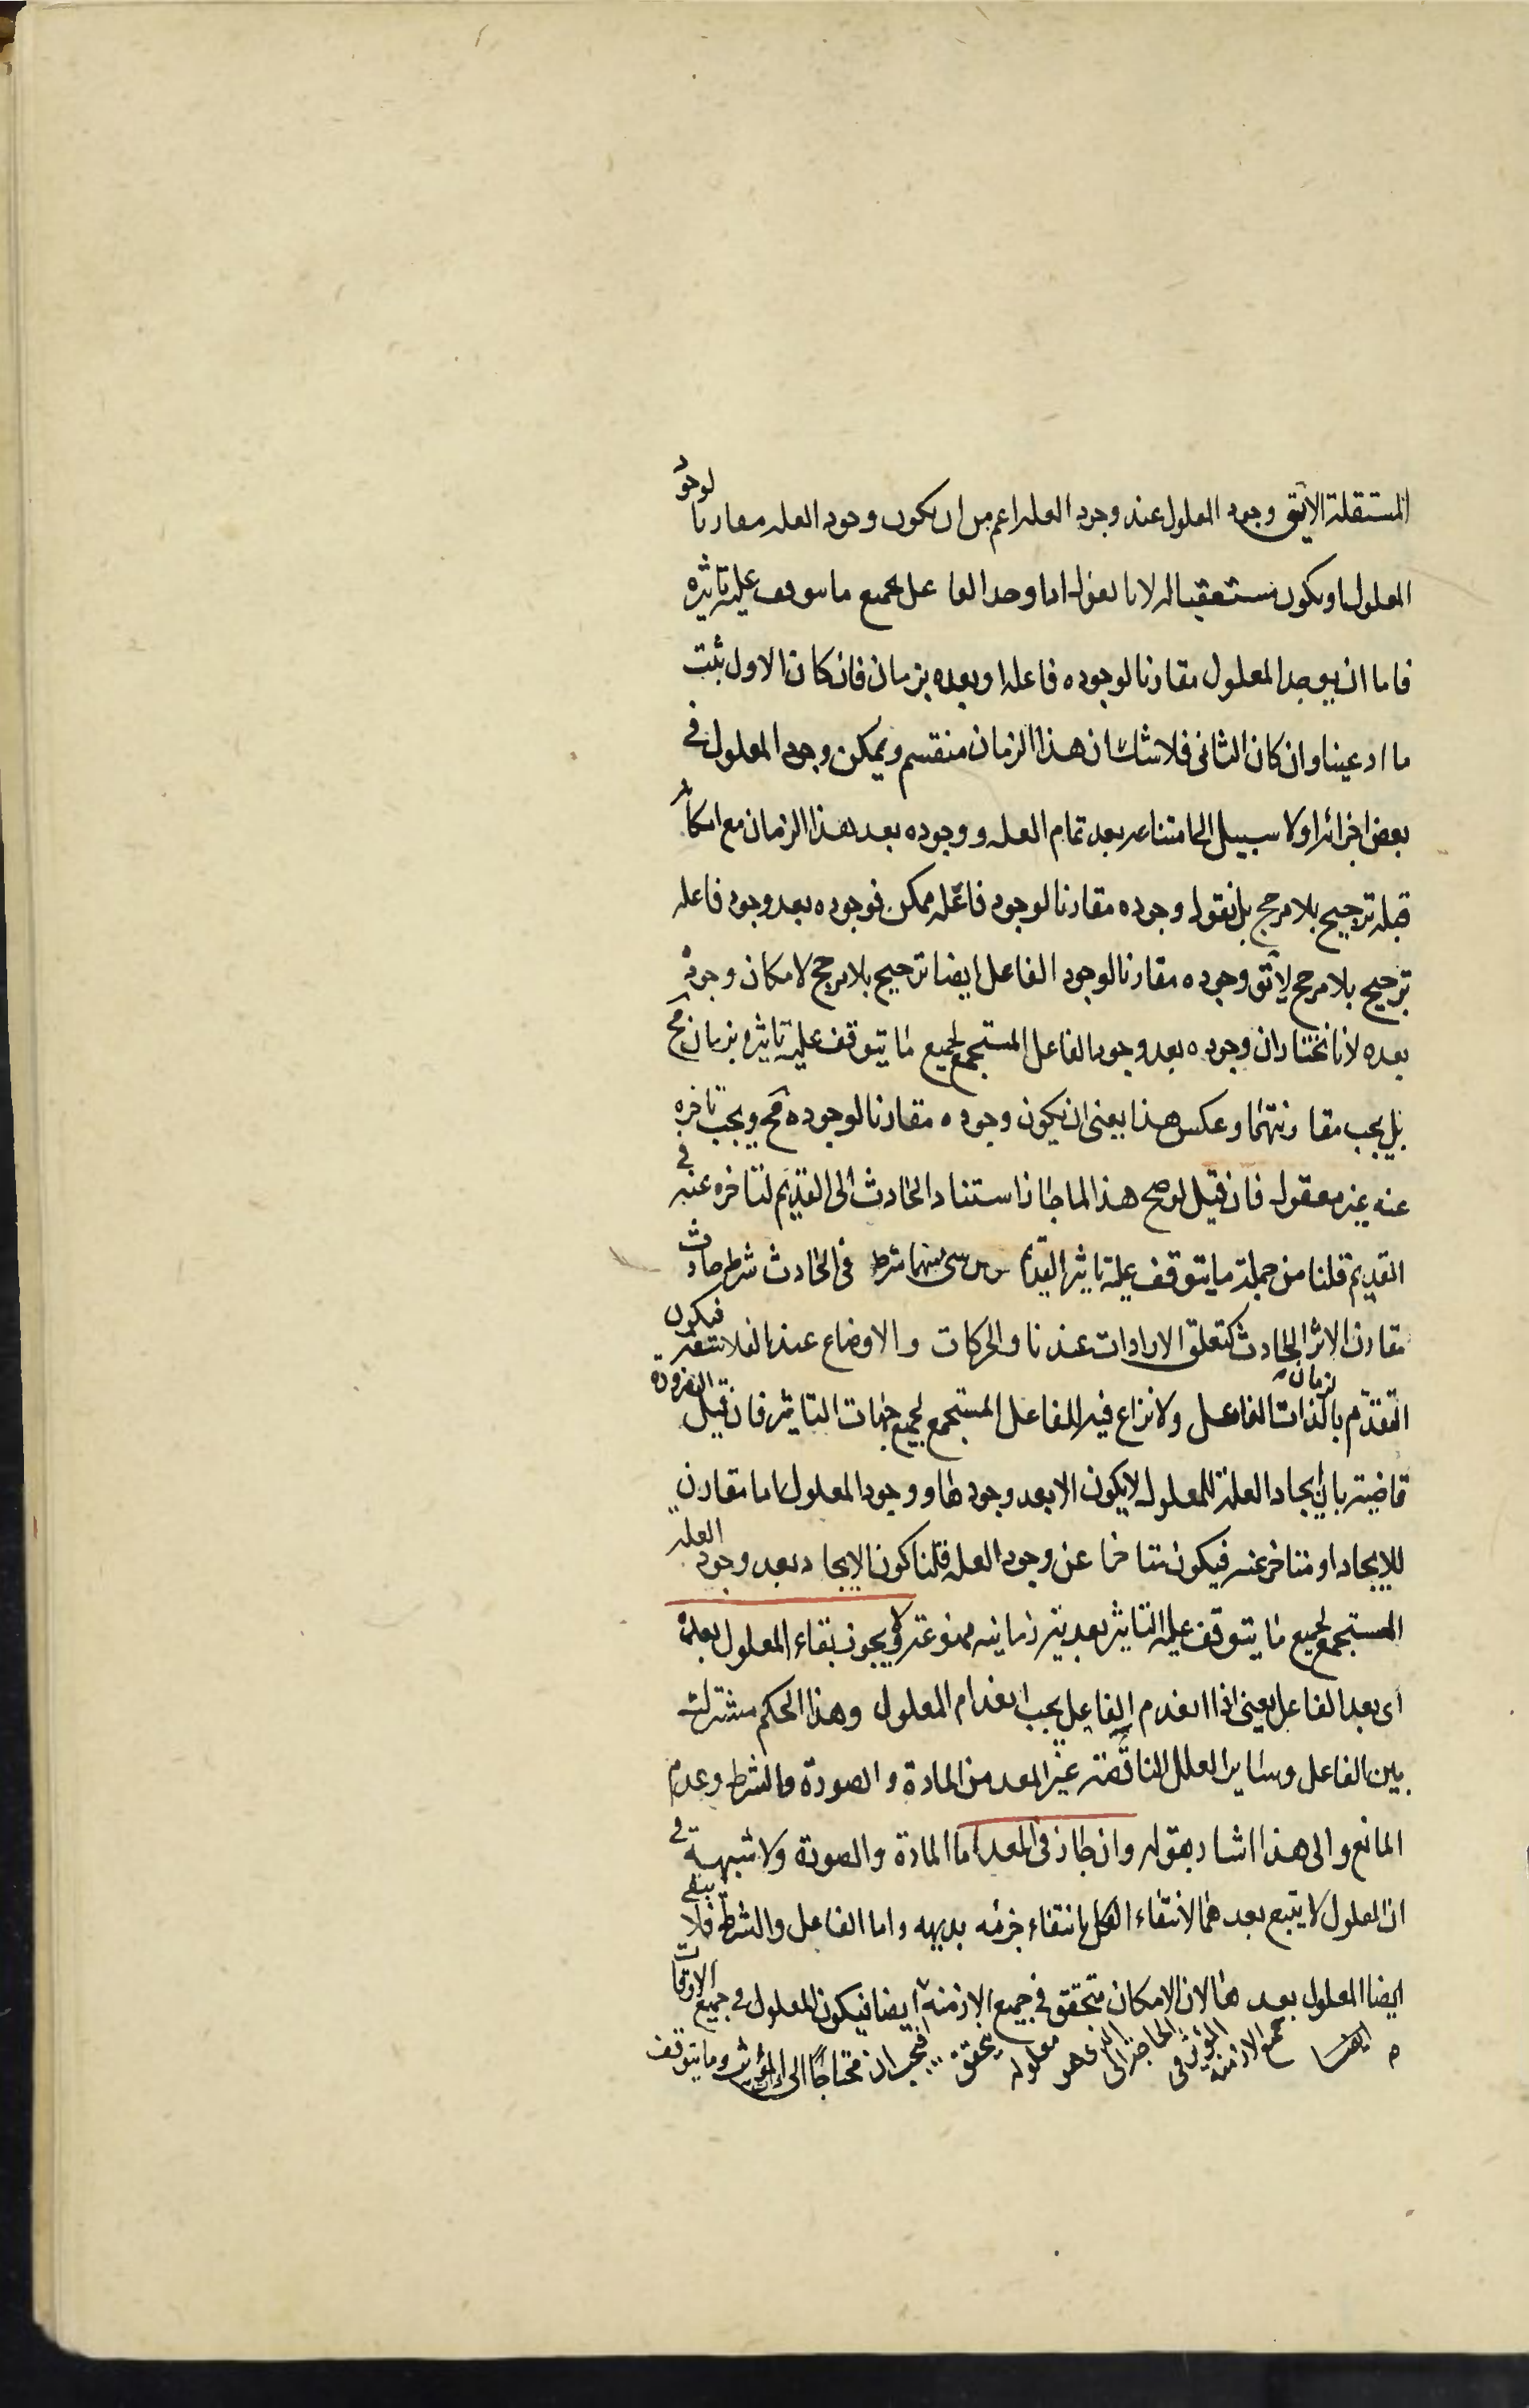 المستقلة لا يق وجود المعلول عند وجود العله اعم من ان يكون وجود العله مقارنا لوجود
المعلول او يكون مستعقبا له لانا نقول اذا وجد الفاعل بجميع ما يتوقف عليه تاثيره
فاما ان يوجد المعلول مقارنا لوجوده فاعله او بعده بزمان فان كان الاول ثبت
ما ادعينا وان كان الثانى فلا شك ان هذا الزمان منقسم ويمكن وجود المعلول فى
بعض اجزائه اولا سبيل الى امتناعه بعد تمام العله ووجوده بعد هذا الزمان مع امكانه
قبله ترجيح بلا مرجح بل نقول وجوده مقارنا لوجود فاعله ممكن فوجوده بعد وجود فاعله
ترجيح بلا مرجح لا يق وجوده مقارنا لوجود الفاعل ايضا ترجيح بلا مرجح لامكان وجوده
بعده لانا نختار ان وجوده بعد وجود الفاعل المستجمع لجميع ما يتوقف عليه تاثيره بزمان مح
بل يجب مقارنتهما وعكس هذا يعنى ان يكون وجوده مقارنا لوجوده مح ويجب تاخره
عنه غير معقول فان قيل لو صح هذا لما جاز استناد الحادث الى القديم لتاخره عنه فى
القديم قلنا من جملة ما يتوقف عليه تاثير القديم شرط فى الحادث شرط حادث
مقارن الاثر الحادث كتعلق الارادات عندنا والحركات والاوضاع عند الفلاسفه فيكون
التقدم بالذات الفاعل بزمان ولا نزاع فيه للفاعل المستجمع لجميع جهات التاثير فان قيل الضرورة
قاضية بان ايجاد العلة للمعلول لا يكون الا بعد وجودها ووجود المعلول اما مقارن
للايجاد او متاخر عنه فيكون متاخرا عن وجود العله قلنا كون الايجاد بعد وجود العله
المستجمع لجميع ما يتوقف عليه التاثير بعديته زمانيه ممنوعة ولا يجوز بقاء المعلول بعده
اى بعد الفاعل يعنى اذا انعدم الفاعل يجب انعدام المعلول وهذا الحكم مشترك
بين الفاعل وساير العلل الناقصة غير المعد من المادة والصورة والشرط وعدم
المانع والى هذا اشار بقوله وان جاز فى المعد اما المادة والصورة ولا شبهة فى
ان المعلول لا يتبع بعدهما لانتفاء الكل بانتفاء جزئه بديهه واما الفاعل والشرط فلا يبقى
ايضا المعلول بعدهما لان الامكان متحقق فى جميع الازمنه ايضا فيكون المعلول فى جميع الاوقات
ايضا جميع الازمنه المؤثر فى الحاجة الى الذى هو معلوله يتحقق فيجب ان محتاجا الى المؤثر وما يتوقف